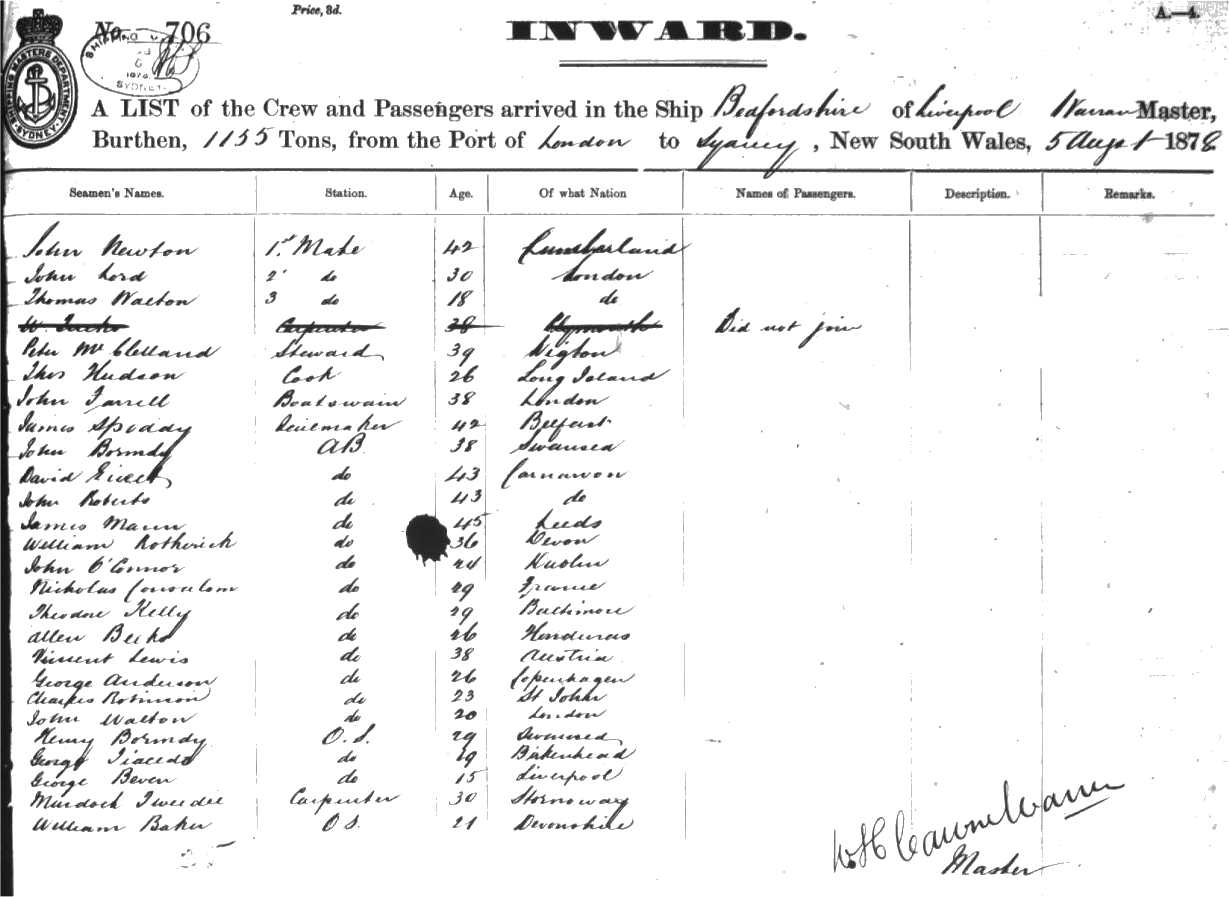 Price, 3d.
A.—4.
No. 706
INWARD.
SHIPPING MASTERS DEPARTMENT SYDNEY
SHIPPING
6
1878
SYDNEY
A LIST of the Crew and Passengers arrived in the Ship Bedfordshire of Liverpool Master,
Burthen, 1155 Tons, from the Port of London to Sydney, New South Wales, 5 Augst 1878
Seamen's Names. Station. Age. Of what Nation Names of Passengers. Description. Remarks.
John Newton 1st Mate 42 Cumberland
John Lord 2 do 30 London
Thomas Walton 3 do 18 do
W. Carpenter 38 Plymouth Did not join
Peter McClelland Steward 39 Wigton
Thos Hudson Cook 26 Long Island
John Farrell Boatswain 38 London
James Speddy Sailmaker 42 Belfast
John Bormdy AB 38 Swansea
David do 43 Carnarvon
John Roberts do 43 do
James Mann do 45 Leeds
William Rotherick do 36 Devon
John O'Connor do 24 Dublin
Nicholas do 29 France
Theodore Kelly do 29 Baltimore
Allen do 26 Honduras
Vincent Lewis do 38 Austria
George Anderson do 26 Copenhagen
Charles Robinson do 23 St John
John Walton do 20 London
Henry Bormdy O.S. 29 Swansea
George do 19 Birkenhead
George Beven do 15 Liverpool
Murdock Tweedee Carpenter 30 Stornoway
William Baker O S. 21 Devonshire
25
Master